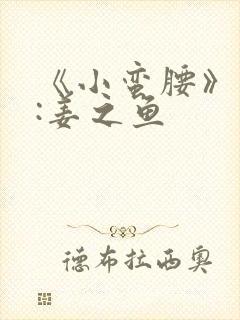 《小蛮腰》
:姜之鱼
德布拉西奥